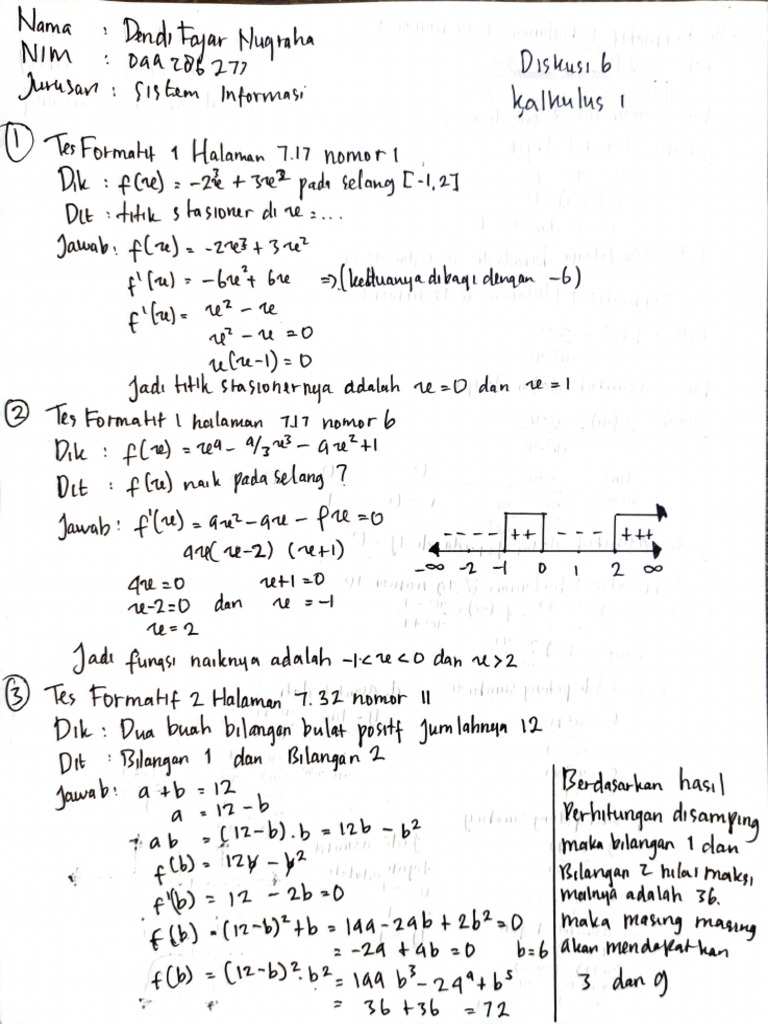 Nama : Dendi Fajar Nugraha
NIM : 044286277
Jurusan : Sistem Informasi
Diskusi 6
Kalkulus 1
① Tes Formatif 1 Halaman 7.17 nomor 1
Dik : f(x) = -2x³ + 3x² pada selang [-1,2]
Dit : titik stasioner di x = ...
Jawab : f(x) = -2x³ + 3x²
f'(x) = -6x² + 6x => (keduanya dibagi dengan -6)
f'(x) = x² - x
x² - x = 0
x(x-1) = 0
Jadi titik stasionernya adalah x = 0 dan x = 1
② Tes Formatif 1 halaman 7.17 nomor 6
Dik : f(x) = x⁴ - 4/3 x³ - 4x² + 1
Dit : f(x) naik pada selang ?
Jawab : f'(x) = 4x² - 4x - 8x = 0
4x(x-2) (x+1)
4x = 0 x+1 = 0
x-2 = 0 dan x = -1
x = 2
---- ++ --- +++
-∞ -2 -1 0 1 2 ∞
Jadi fungsi naiknya adalah -1 < x < 0 dan x > 2
③ Tes Formatif 2 Halaman 7.32 nomor 11
Dik : Dua buah bilangan bulat positf Jumlahnya 12
Dit : Bilangan 1 dan Bilangan 2
Jawab : a + b = 12
a = 12 - b
ab = (12-b).b = 12b - b²
f(b) = 12b - b²
f'(b) = 12 - 2b = 0
f(b) = (12-b)² + b = 144 - 24b + 2b² = 0
= -24 + 4b = 0 b = 6
f(b) = (12-b)².b² = 144 b³ - 24⁴ + b⁵
= 36 + 36 = 72
Berdasarkan hasil
Perhitungan disamping
maka bilangan 1 dan
Bilangan 2 nilai maksi
malnya adalah 36.
maka masing masing
akan mendapatkan
3 dan 9